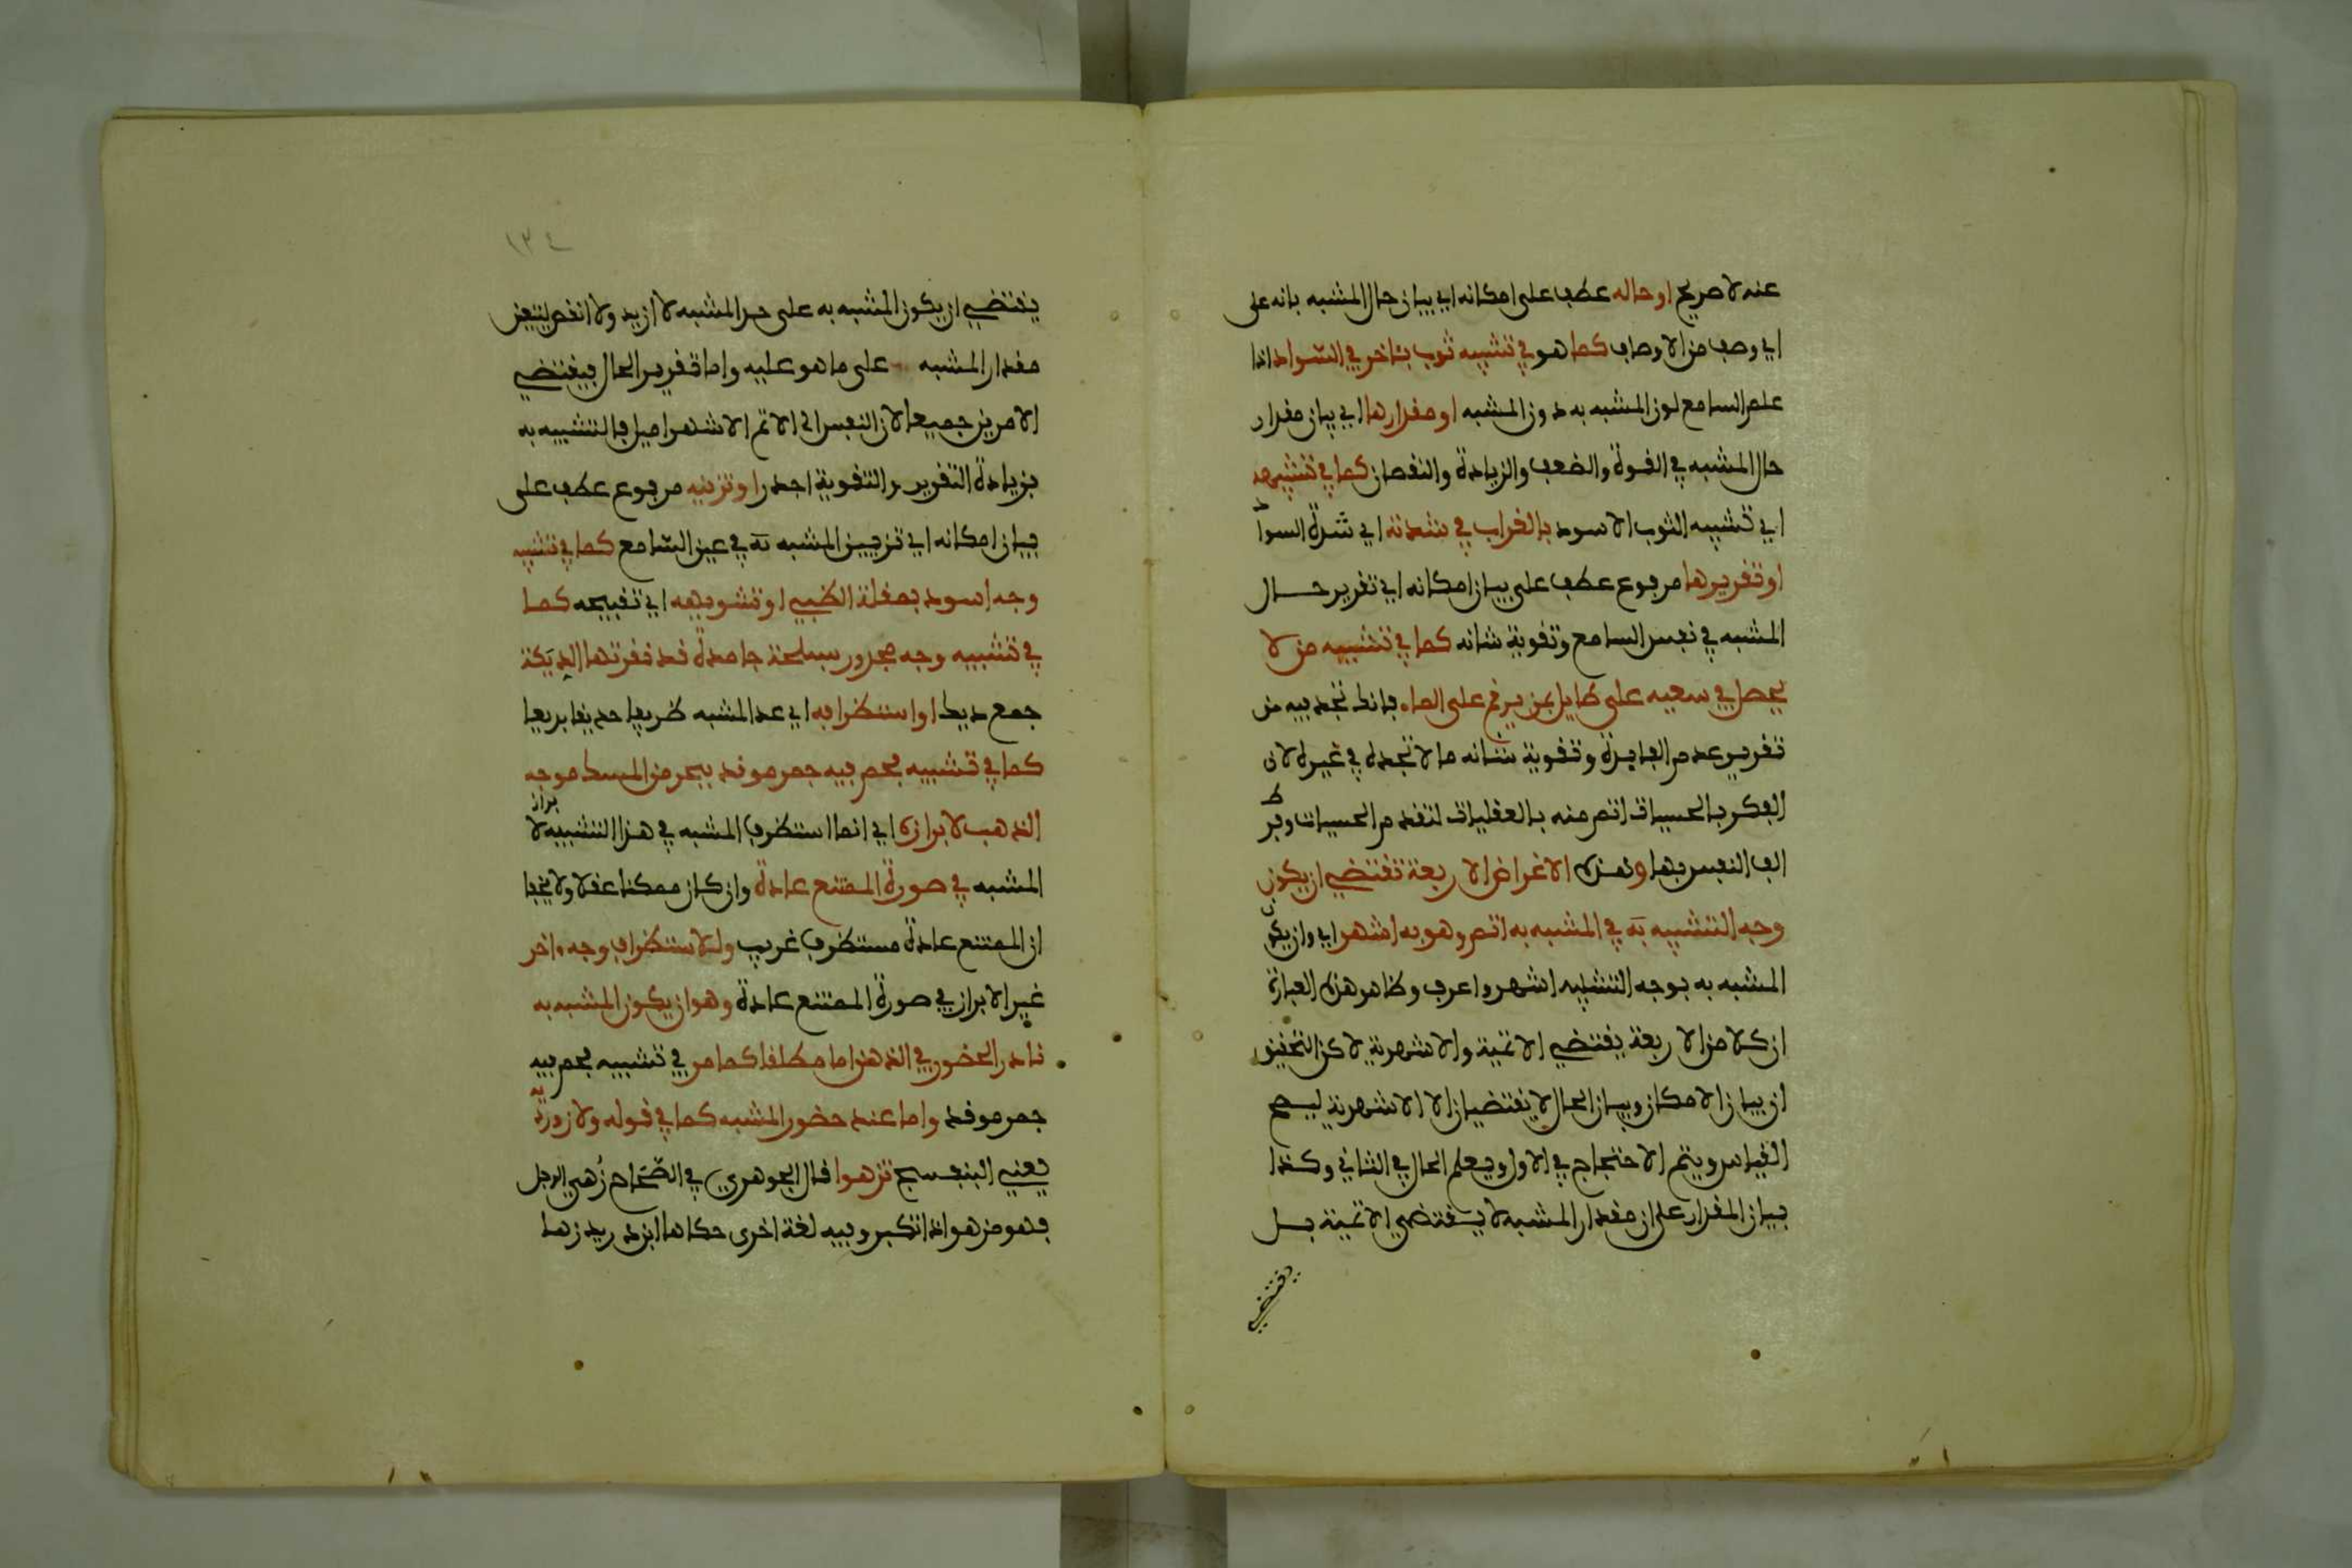 عنه لا صريح او حاله عطف على امكانه اي بيان حال المشبه بانه على
اي وصف من الاوصاف كما هو في تشبيه ثوب بئاخر في السّواد اذا
علم السامع لون المشبه به دون المشبه او مقدارها اي بيان مقدار
حال المشبه في القوة والضعف والزيادة والنقصان كما في تشبيهه
اي تشبيه الثوب الاسود بالغراب في شدته اي شدة السواد
او تقريرها مرفوع عطف على بيان امكانه اي تقرير حال
المشبه في نفس السامع وتقوية شانه كما في تشبيه من لا
يحصل في سعيه على طايل بمن يرقم على الماء فانك تجد فيه من
تقرير عدم الفايدة وتقوية شانه ما لا تجده في غيره لان
الفكر بالحسيات اتم منه بالعقليات لتقدم الحسيات وفرط
الف النفس بها وهذه الاغراض الاربعة تقتضي ان يكون
وجه التشبيه به في المشبه به اتم وهو به اشهر اي وان يكون
المشبه به بوجه التشبيه اشهر واعرف وظاهر هذه العبارة
ان كلا من الاربعة يقتضي الاتمية والاشهرية لاكن التحقيق
ان بيان الامكان وبيان الحال لا يقتضيان الا الاشهرية ليصح
القياس ويتم الاحتجاج في الاول ويعلم الحال في الثاني وكذا
بيان المقدار على ان مقدار المشبه لا يقتضي الاتمية بل
يقتضي
١٣٤
يقتضي ان يكون المشبه به على حد المشبه لا ازيد ولا انقص ليتعين
مقدار المشبه على ما هو عليه واما تقرير الحال فيقتضي
الامرين جميعا لان النفس الى الاتم الاشهر اميل فالتشبيه به
بزيادة التقرير والتقوية اجدر او تزيينه مرفوع عطف على
بيان امكانه اي تزيين المشبه به في عين السّامع كما في تشبيه
وجه اسود بمقلة الظبي او تشويهه اي تقبيحه كما
في تشبيه وجه مجدور بسلحة جامدة قد نقرتها الديَكة
جمع ديك او استطرافه اي عد المشبه طريفا حديثا بديعا
كما في تشبيه فحم فيه جمر موقد ببحر من المسك موجه
الذهب لابرازه اي انما استطرف المشبه في هذا التشبيه لابراز
المشبه في صورة الممتنع عادة وان كان ممكنا عقلا ولا يخفا
ان الممتنع عادة مستطرف غريب وللاستطراف وجه ءاخر
غير الابراز في صورة الممتنع عادة وهو ان يكون المشبه به
نادر الحضور في الذهن اما مطلقا كما مر في تشبيه فحم فيه
جمر موقد واما عند حضور المشبه كما في قوله ولازوردية
يعني البنفسج تزهوا قال الجوهري في الصّحاح زُهي الرجل
فهو مزهو اذا تكبر وفيه لغة اخرى حكاها ابن دريد زها